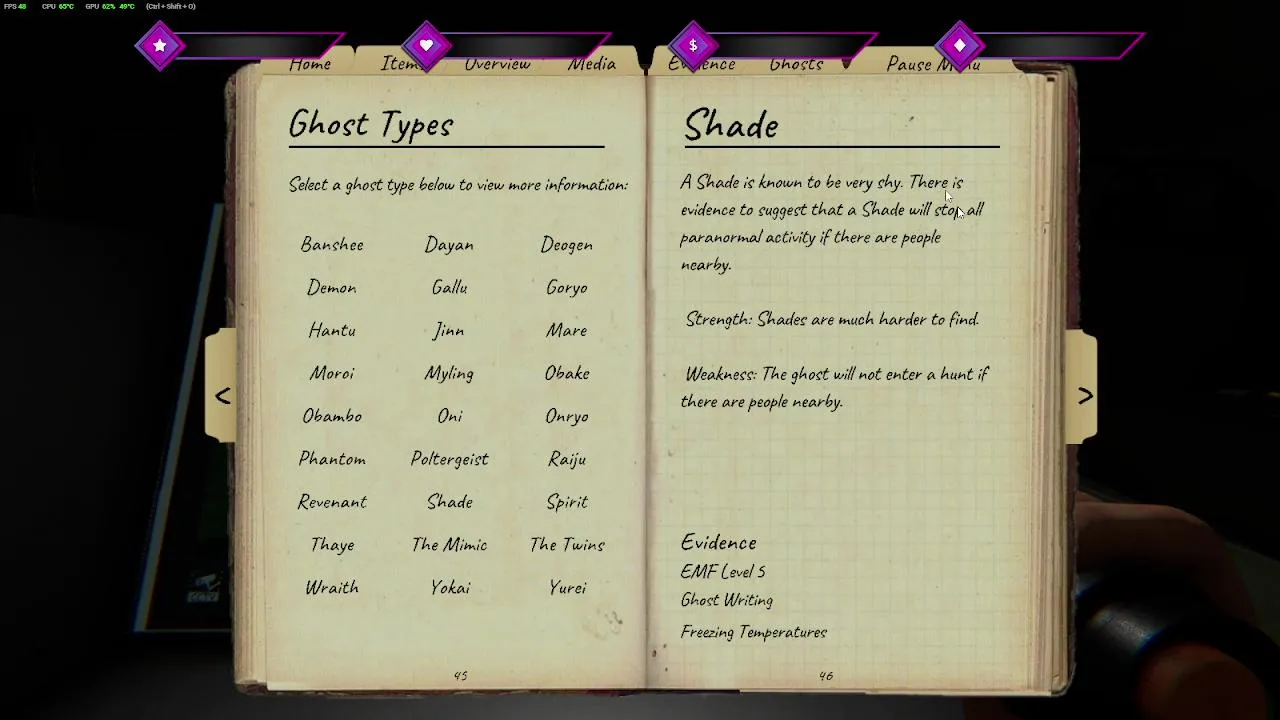 FPS 48 CPU 65°C GPU 62% 49°C (Ctrl + Shift + O)
Home Item Overview Media Evidence Ghosts Pause Menu
Ghost Types
Select a ghost type below to view more information:
Banshee Dayan Deogen
Demon Gallu Goryo
Hantu Jinn Mare
Moroi Myling Obake
Obambo Oni Onryo
Phantom Poltergeist Raiju
Revenant Shade Spirit
Thaye The Mimic The Twins
Wraith Yokai Yurei
45
<
Shade
A Shade is known to be very shy. There is
evidence to suggest that a Shade will stop all
paranormal activity if there are people
nearby.
Strength: Shades are much harder to find.
Weakness: The ghost will not enter a hunt if
there are people nearby.
Evidence
EMF Level 5
Ghost Writing
Freezing Temperatures
46
>
CCTV